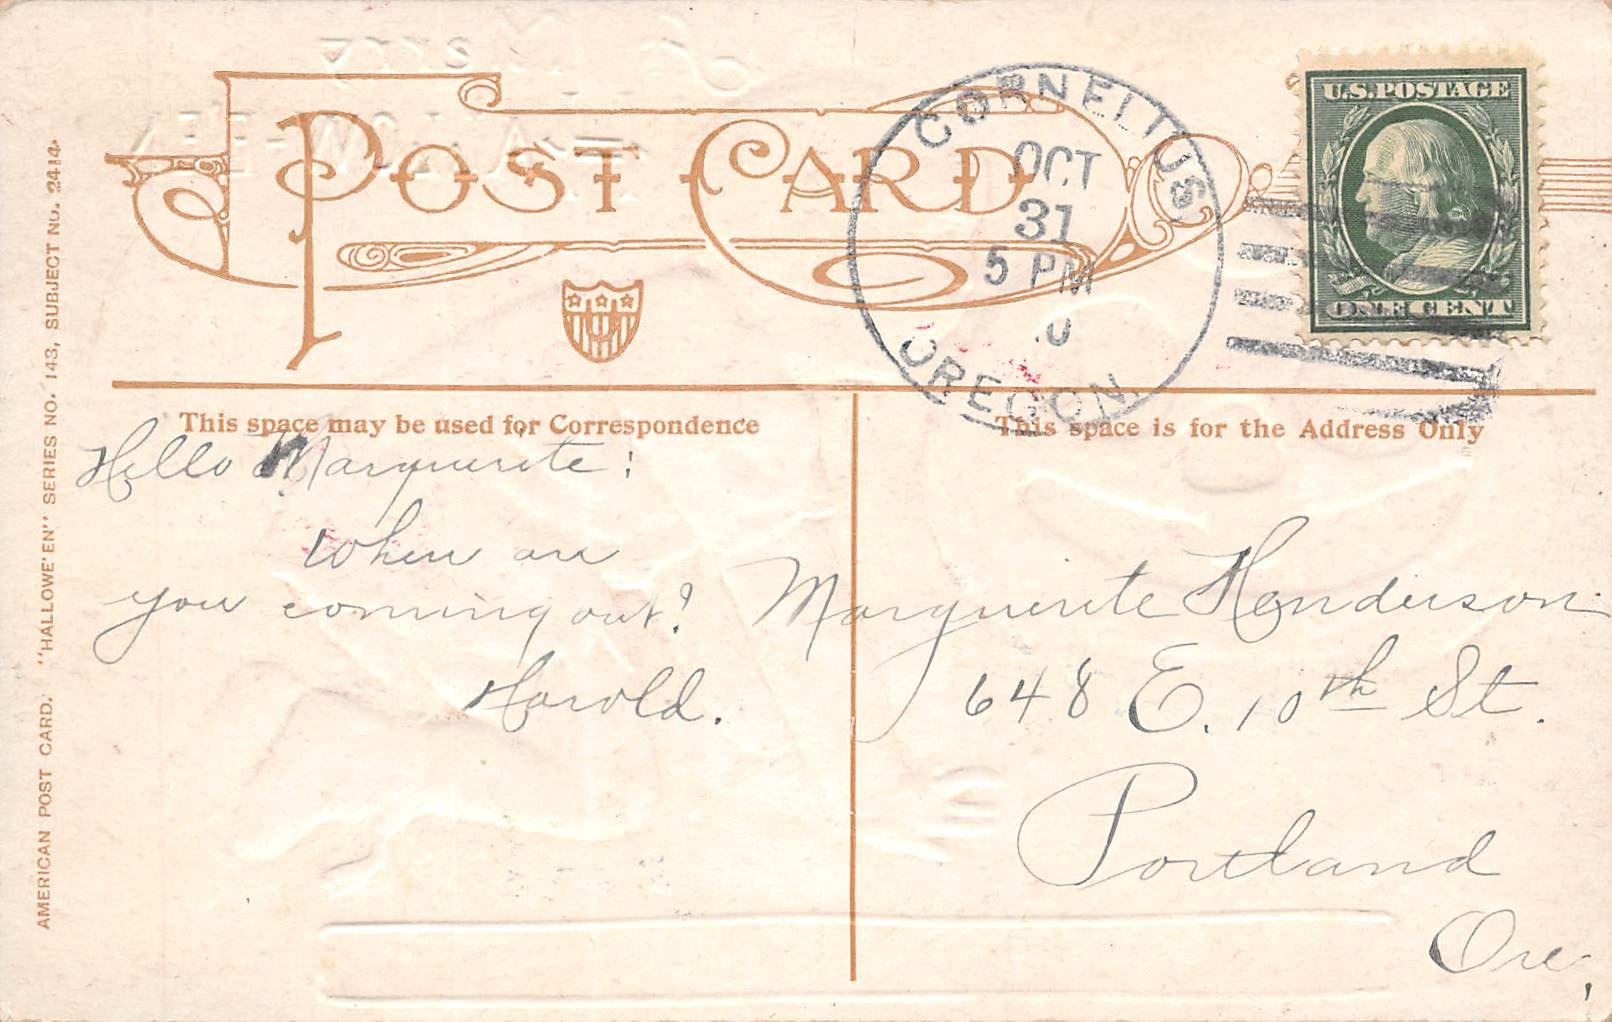 POST CARD
CORNELIUS
OCT
31
5 PM
0
OREGON
U.S. POSTAGE
ONE CENT
This space may be used for Correspondence
This space is for the Address Only
Hello Marguerite:
When are
you coming out?
Harold.
Marguerite Henderson
648 E. 10th St.
Portland
Ore.
AMERICAN POST CARD. "HALLOWE'EN" SERIES NO. 143, SUBJECT NO. 2414.